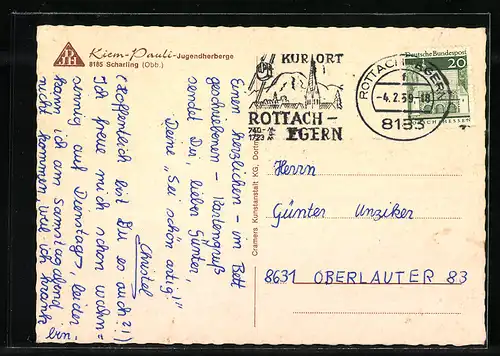 DJH
Kiem-Pauli-Jugendherberge
8185 Scharling (Obb.)
Einen herzlichen - im Bett
geschriebenen - Kartengruß
sendet Dir, lieber Günter,
Deine „Sei schön artig!"
Christel
(Hoffentlich bist Du es auch?!)
Ich freue mich schon wahn=
sinnig auf Dienstag, leider
kann ich am Samstagabend
nicht kommen, weil ich krank bin.
Cramers Kunstanstalt KG, Dortm
KURORT
ROTTACH-
EGERN
740-
1723 m
ROTTACH-EGERN 1
-4.2.69.-18
8183
Deutsche Bundespost
20
Herrn
Günter Unziker
8631 OBERLAUTER 83